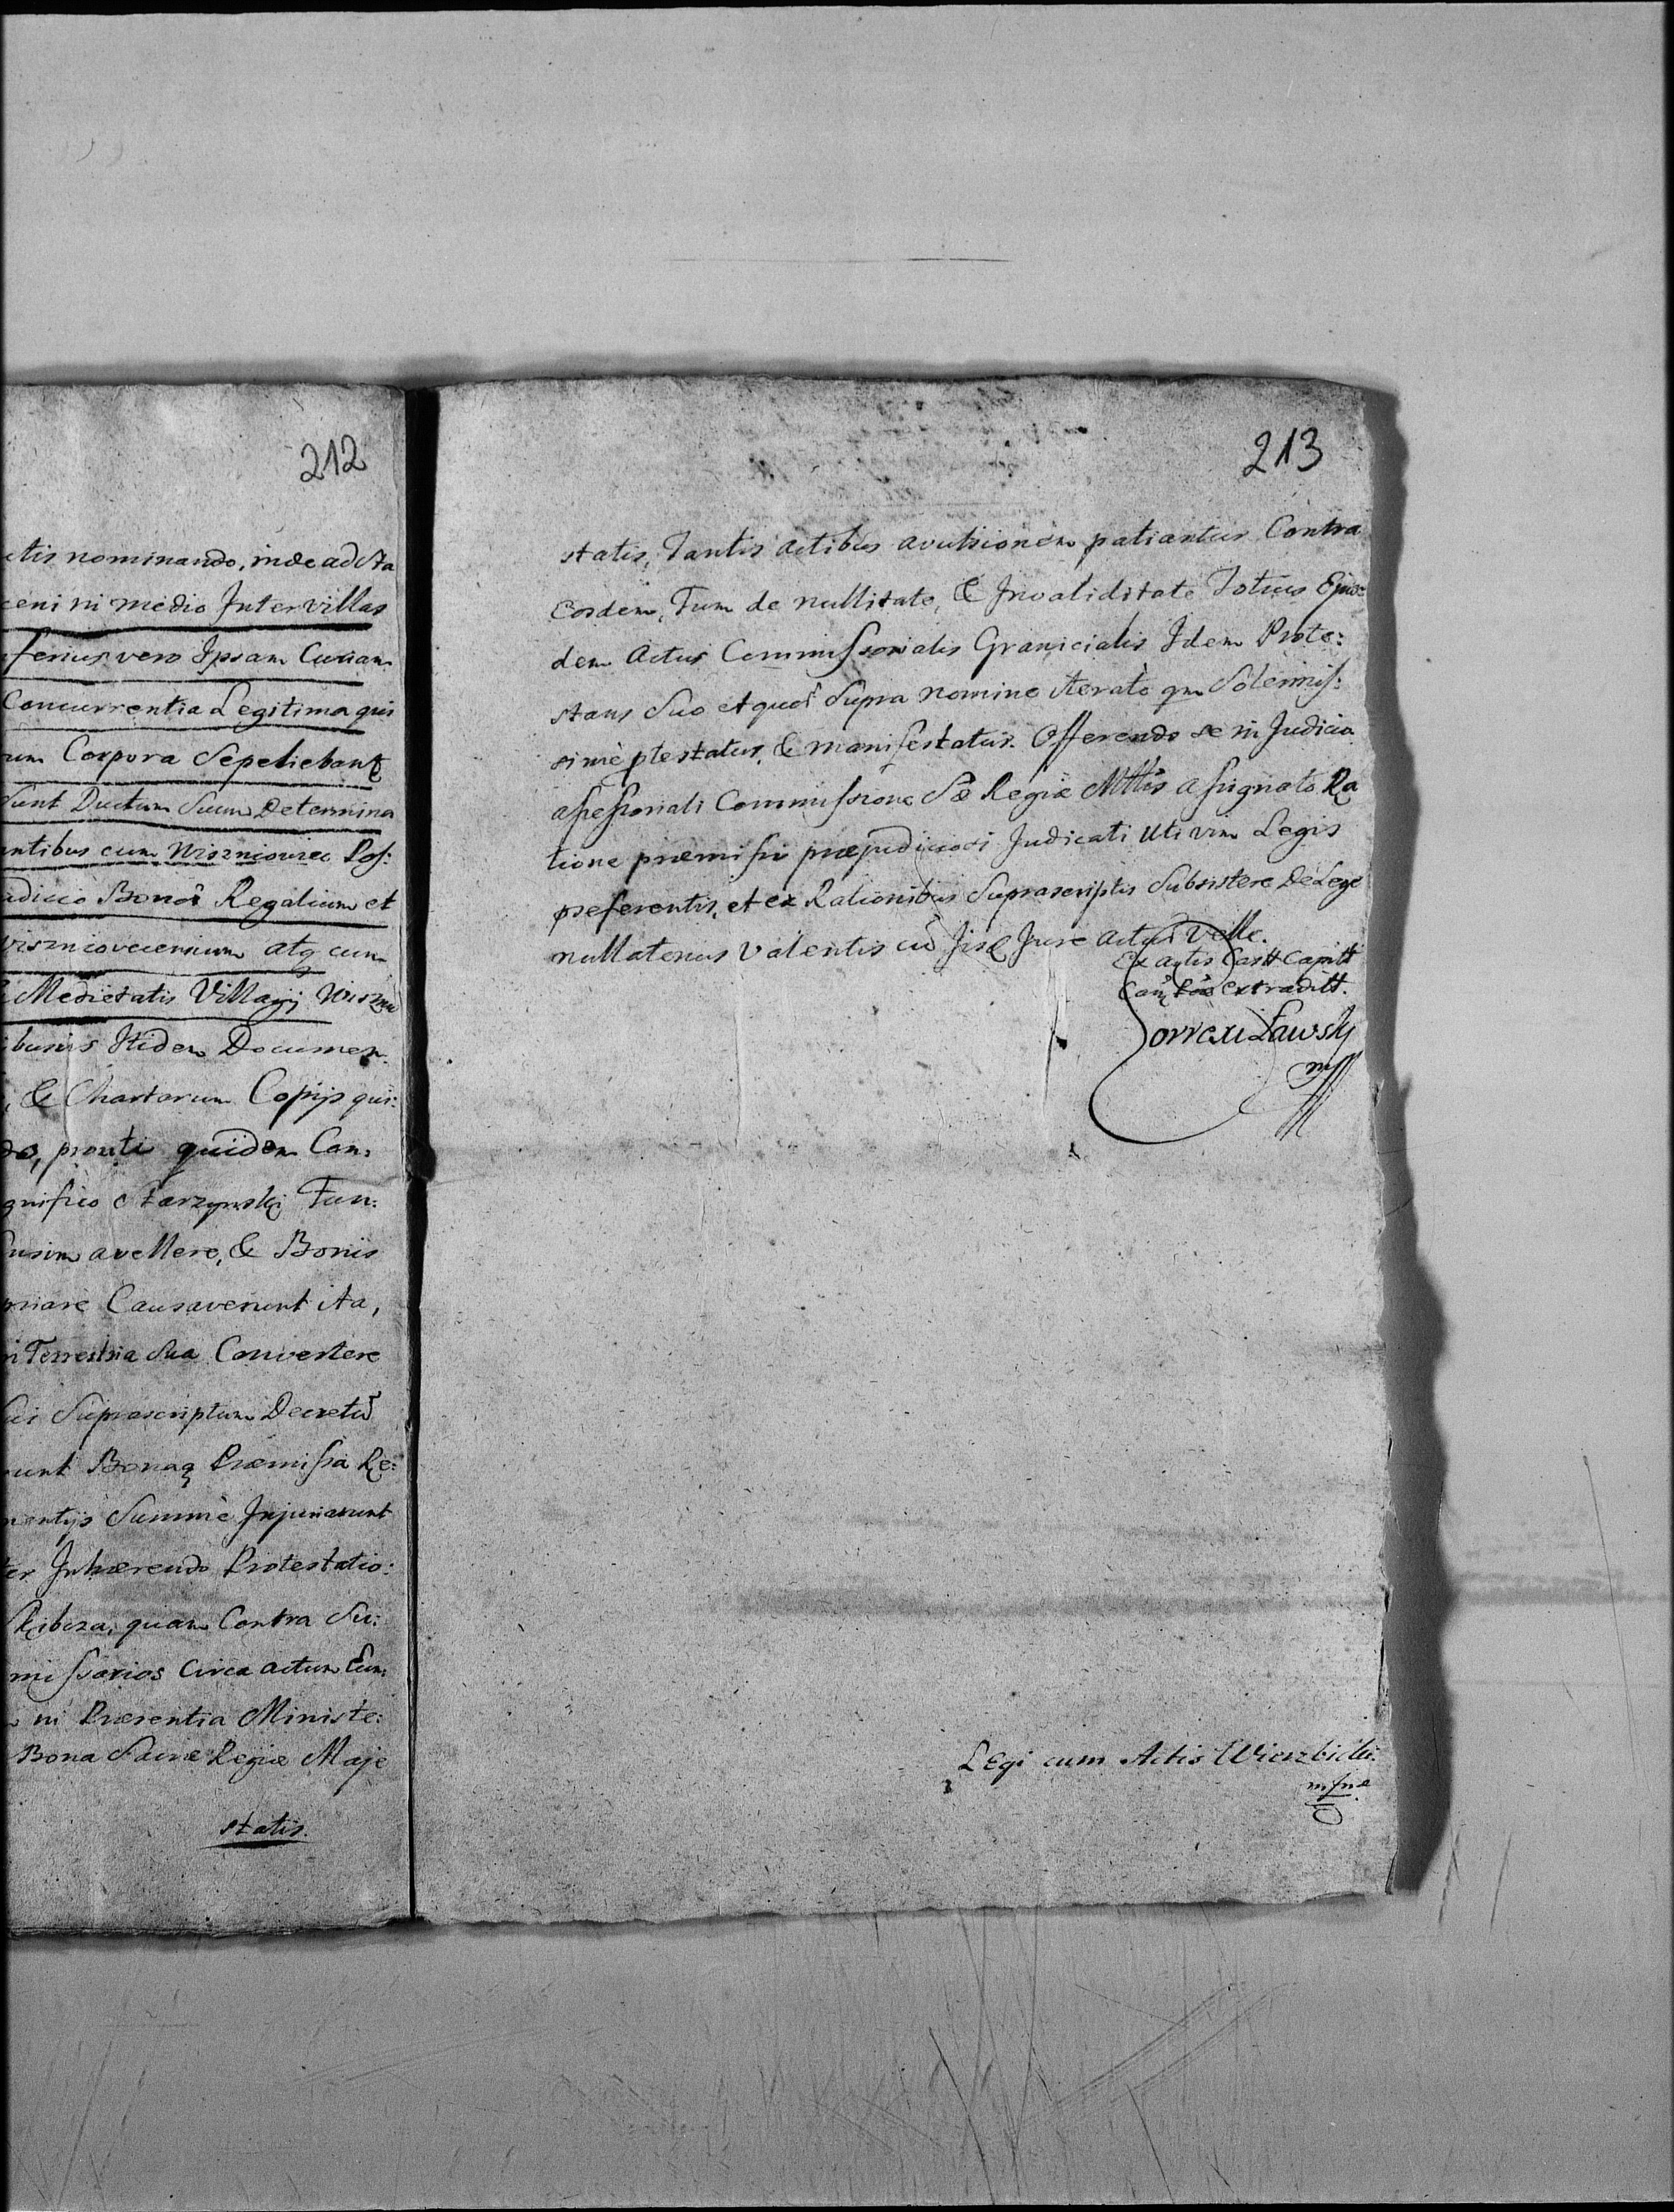 212
ctis nominando, inde ad Sta
ceni in medio Inter villas
ferius vero Ipsam Curiam
Concurrentia Legitima qui
um Corpora Sepeliebant
sunt Ductum Suum Determina
antibus cum Wiszniowiec Pos:
udicio Bonor Regalium et
atq cum
Medietatis Villagij
Itidem Documen
, & Chartarum Copijs qui:
do, prouti quidem Com:
gnifico Starzynski Tan:
avellere, & Bonis
priare Causaverunt ita,
n Terrestria Sua Convertere
Suprascriptum Decretu
runt Bonaq Præmissa Re:
mentijs Summè Injuriarunt
ter Inhærendo Protestatio:
quam Contra Su:
missarios Circa actum Eun:
in Præsentia Ministe:
Bona Sacræ Regiæ Maje
statis.
213
statis, Tantis actibus avulsionem patiantur Contra
Eosdem, Tum de nullitate, & Invaliditate Totius Ejus:
dem Actus Commissorialis Granicialis Idem Prote:
stans Suo et quor Supra nomine iterato qm Solennis:
simè ptestatur, & manifestatur. Offerendo se in Judicio
assessoriali Commissione Sæ Regiæ Mttis assignato Ra
tione præmissi præjudiciosi Judicati Uti vim Legis
præferentis, et ex Rationibus Suprascriptis Subsistere De Lege
nullatenus Valentis Jure Actur Velle.
Ex actis Castt Capitt
extraditt.
mpp
Legi cum Actis Wierzbicki
mpria